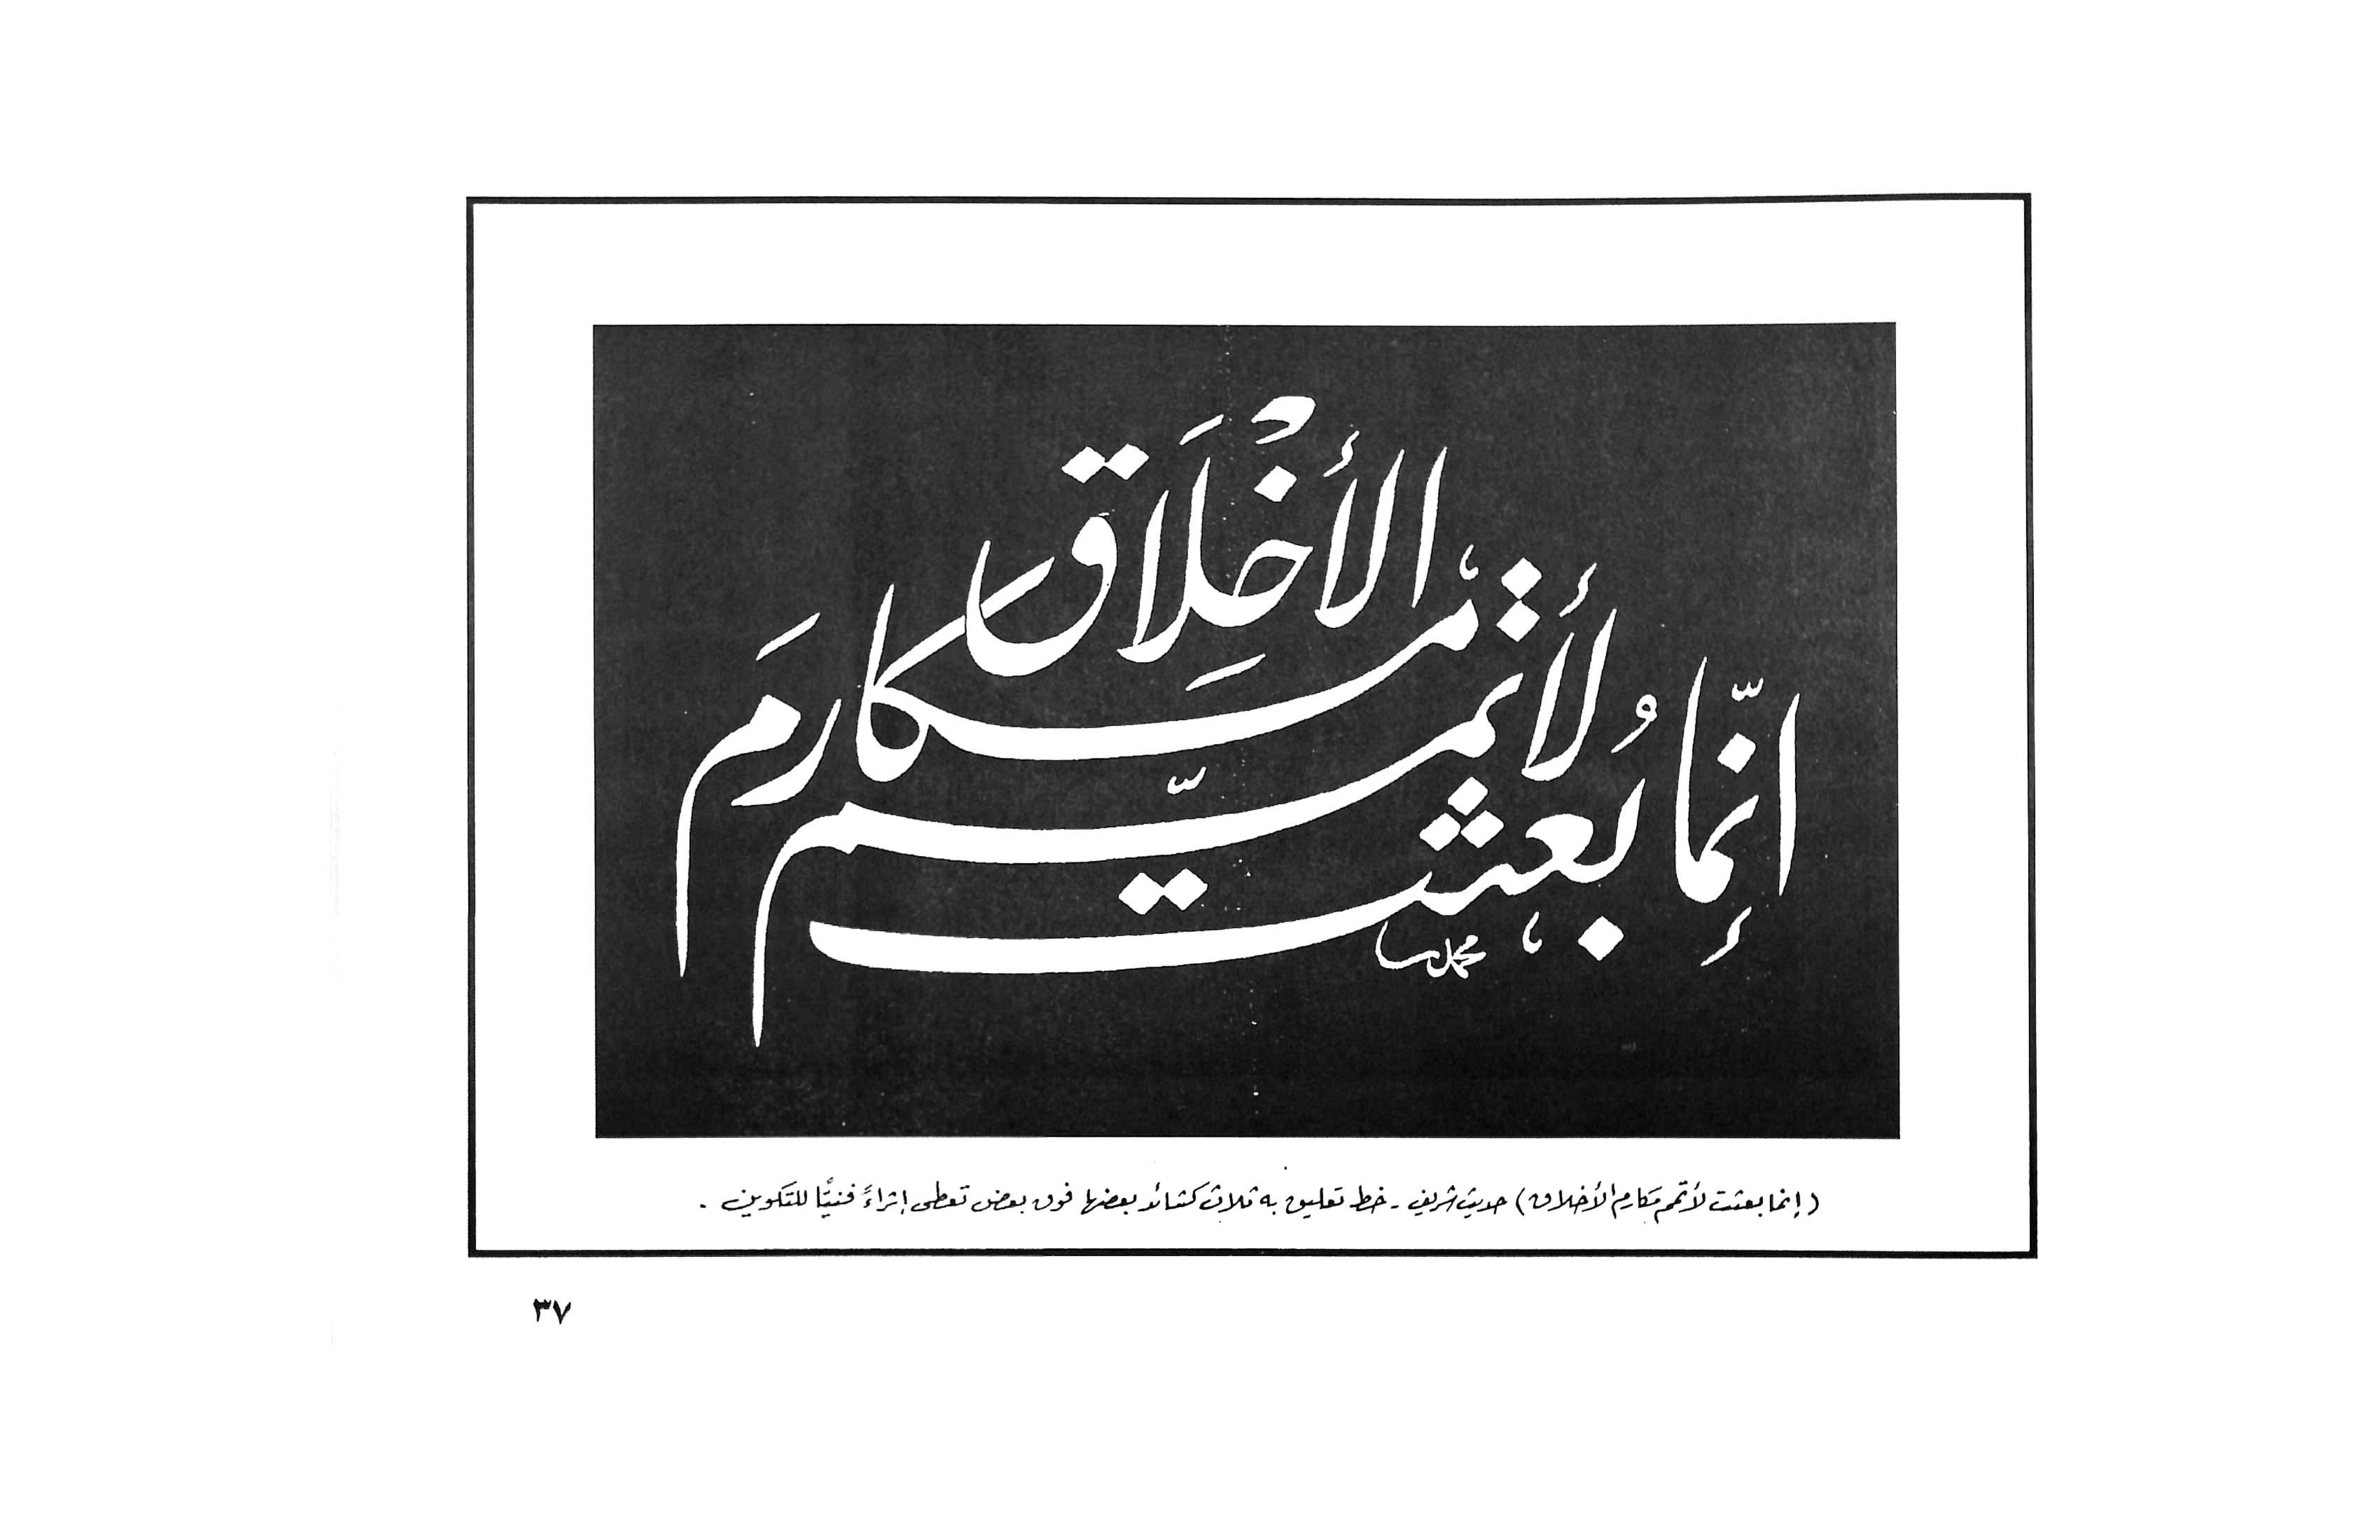 إنّما بُعثت لأتمّم مكارمَ الأخْلَاقِ
محمد
(إنما بعثت لأتمم مكارم الأخلاق) حديث شريف - خط تعليق به ثلاث كشائد بعضها فوق بعض تعطى إثراءً فنيًّا للتكوين .
٣٧